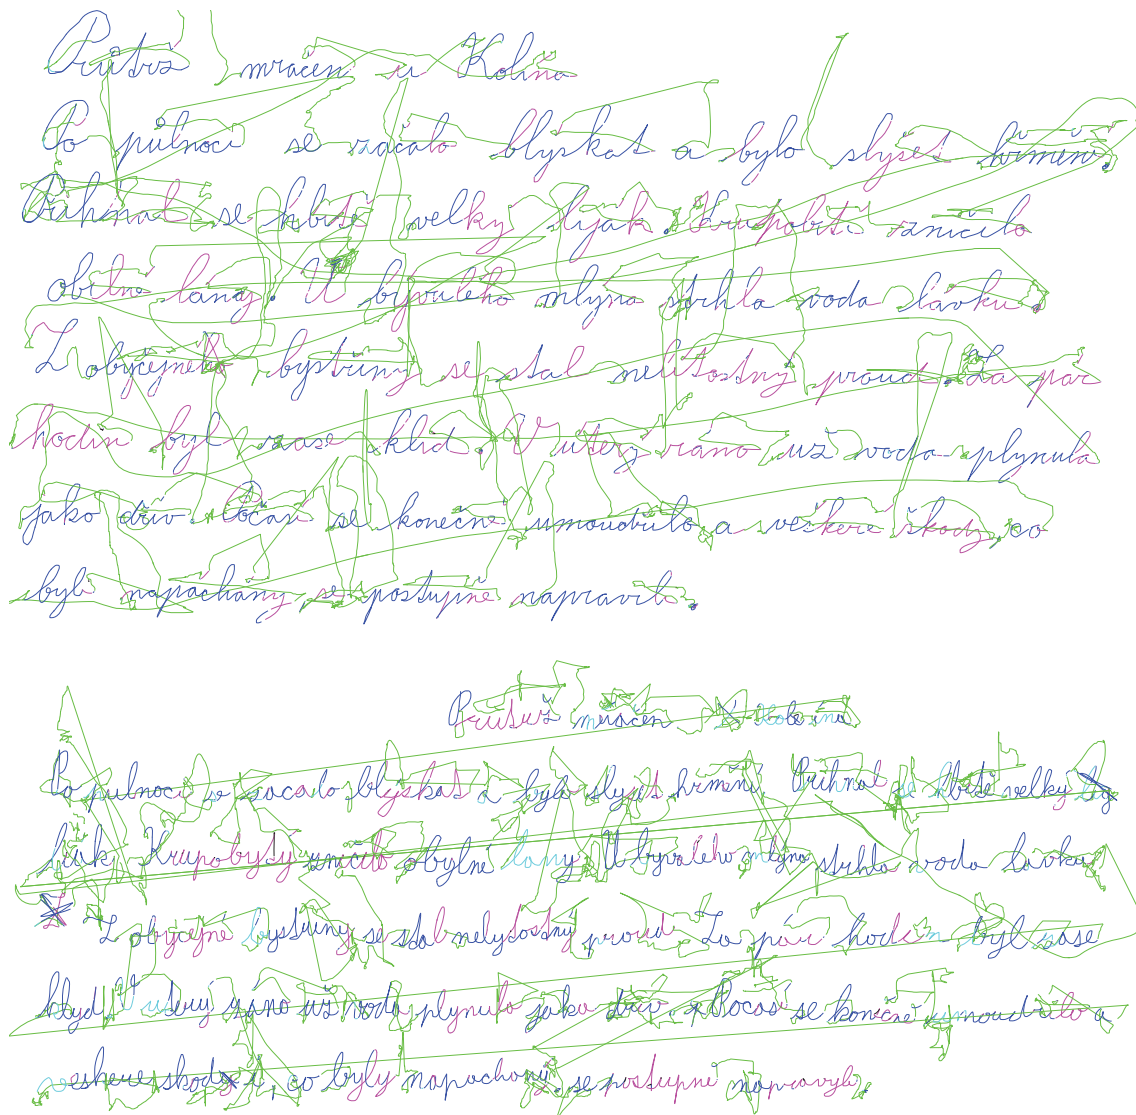 Průtrž mračen u Kolína
Po půlnoci se začalo blýskat a bylo slyšet hřmění.
Přihnal se hbitě velký sliják. Krupobití zničilo
obilné lány. U bývalého mlýna strhla voda lávku.
Z obyčejného bystřiny se stal nelítostný proud. Za pár
hodin byl zase klid. V úterý ráno už voda plynula
jako dřív. Počasí se konečně umoudřilo a veškeré škody, co
byli napáchány, se postupně napravili.
Prutrž mračen Kolína
Po pulnoci se začalo blýskat a bylo slyšet hřmění. Přihnal se hbitě velký
lijak. Krupobyty zničilo obylné lany. U byvalého mlýna strhla voda lavku.
Z obyčejné bystřiny se stal nelytostný proud. Za pár hodin byl zase
klyd. V uterý ráno už voda plynulo jako dřiv. Počasí se konečně umoudřilo a
veškere škody i, co byly napachany, se postupně napravyli.